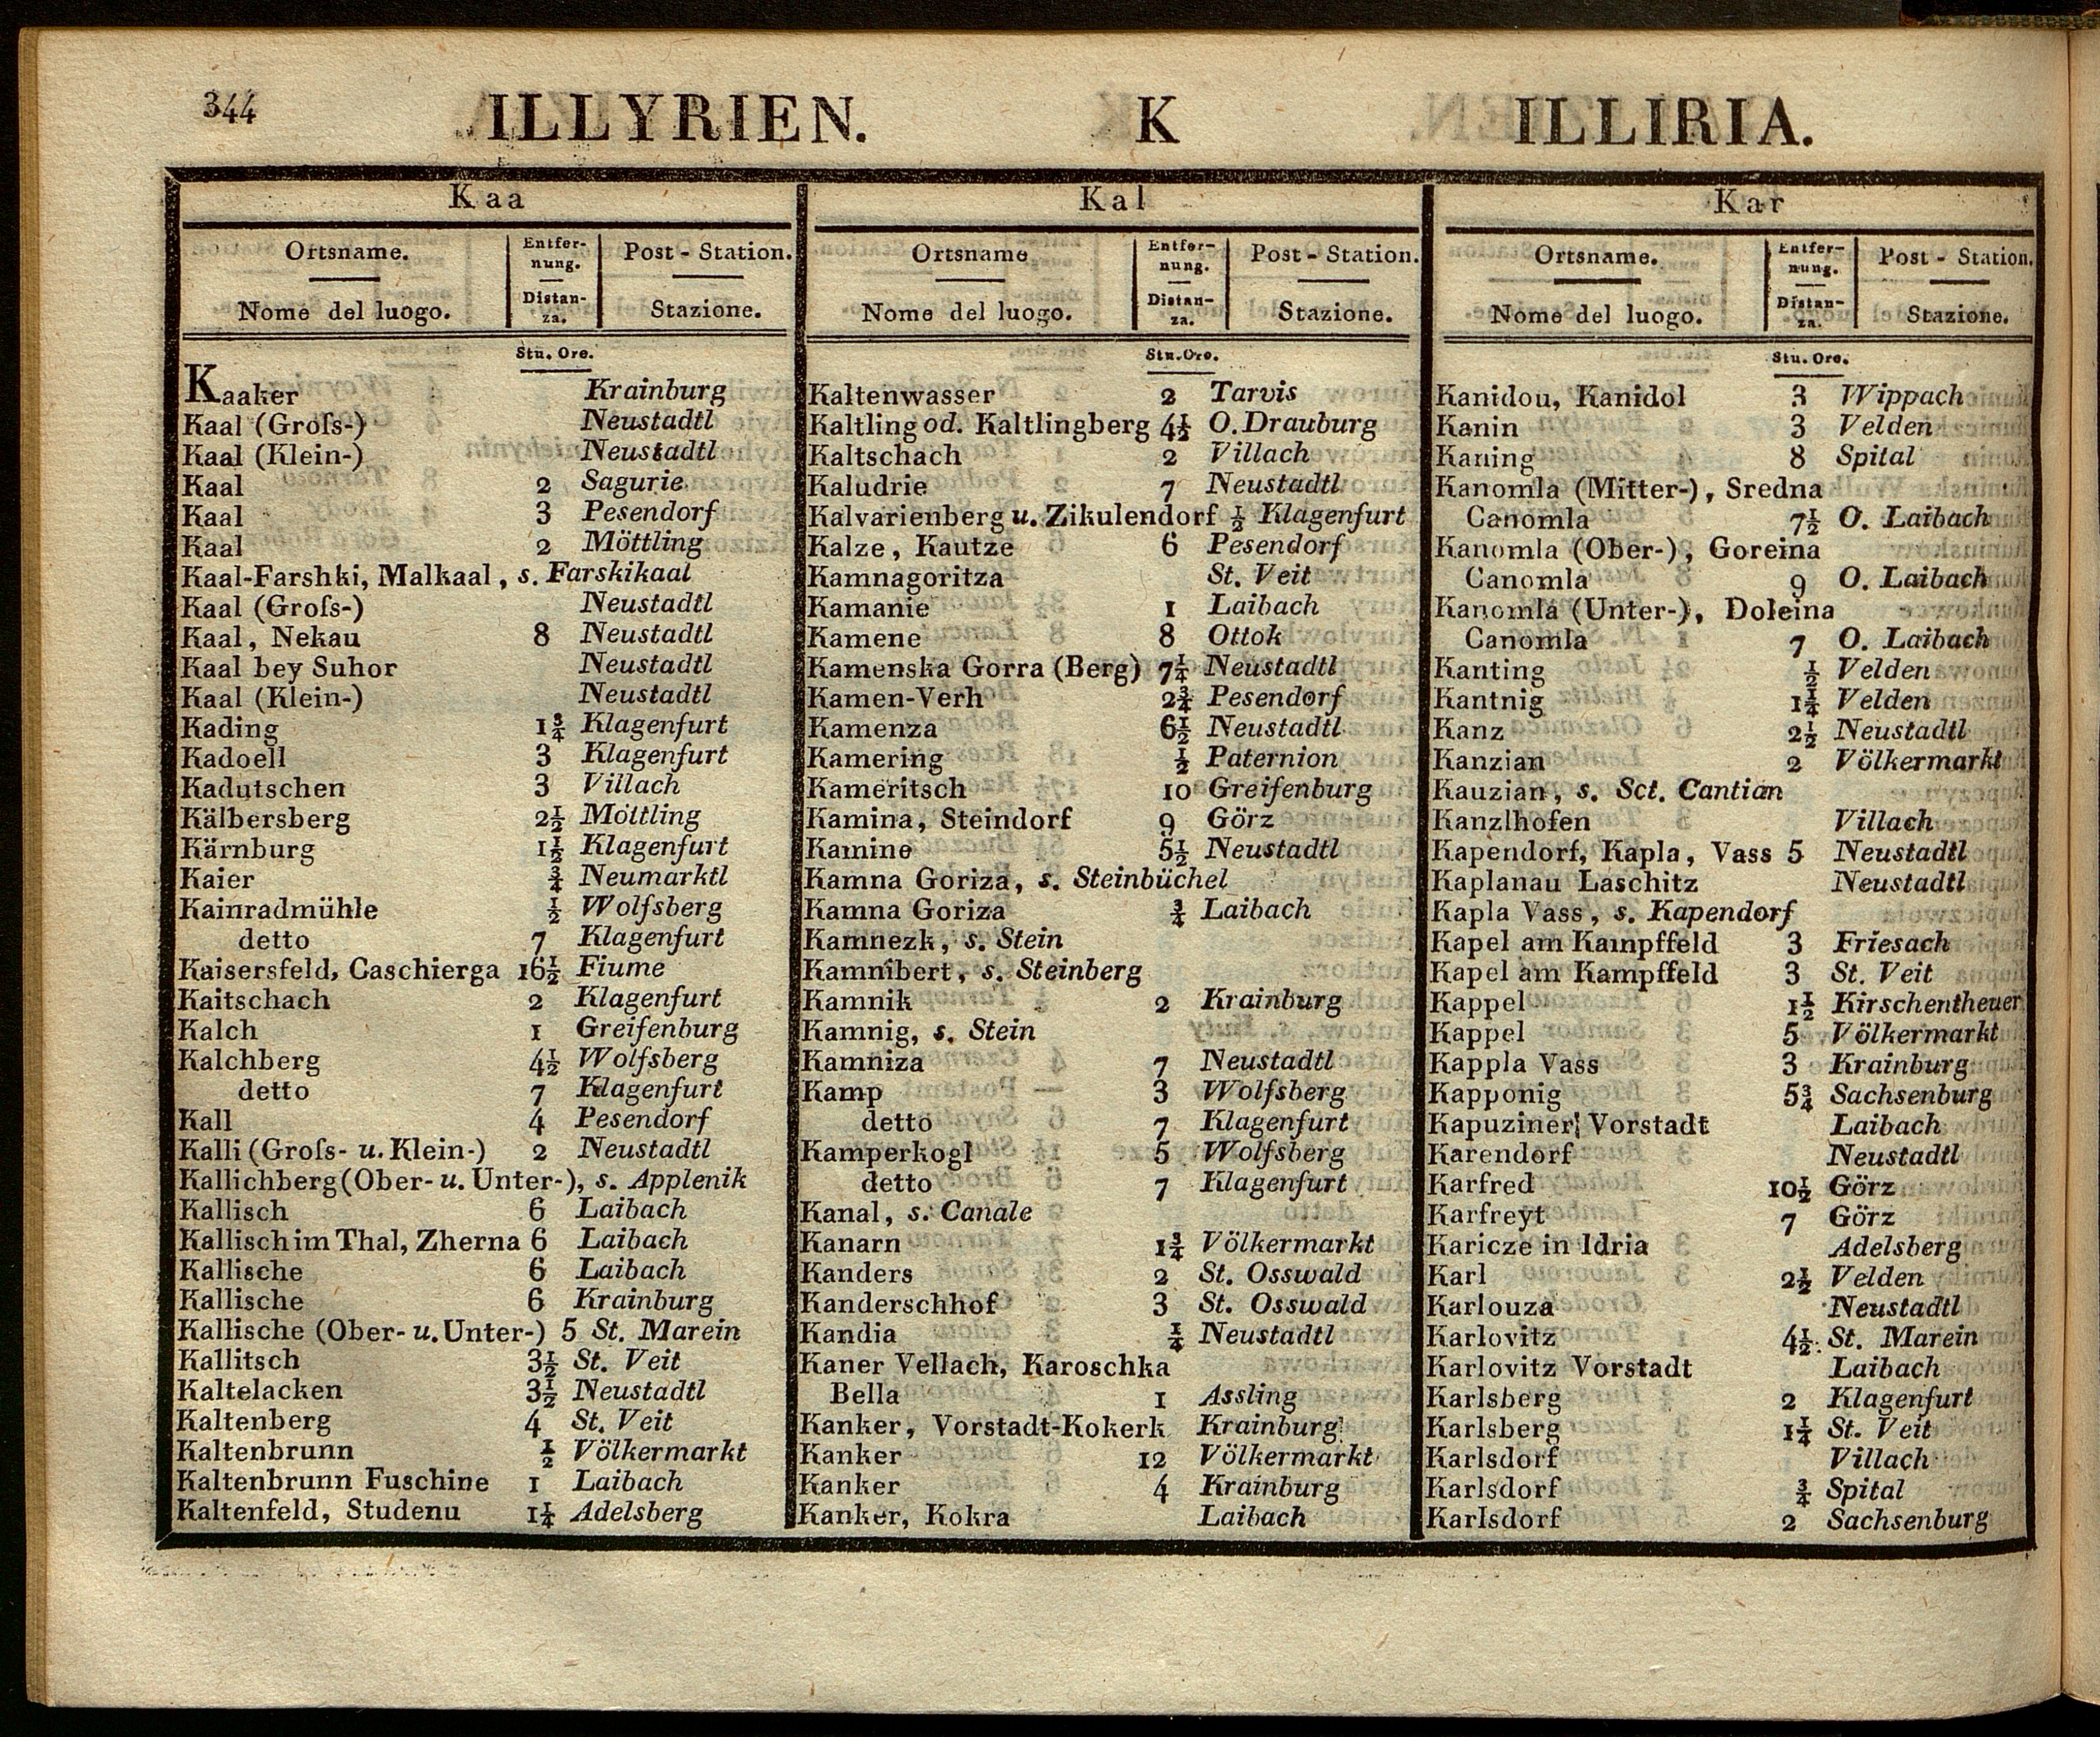 344 ILLYRIEN. K ILLIRIA.
Kaa
Ortsname. Entfer- Post - Station.
nung.
Nome del luogo. Distan- Stazione.
za.
Stu. Ore.
Kaaker Krainburg
Kaal (Groſs-) Neustadtl
Kaal (Klein-) Neustadtl
Kaal 2 Sagurie
Kaal 3 Pesendorf
Kaal 2 Möttling
Kaal-Farshki, Malkaal, s. Farskikaal
Kaal (Groſs-) Neustadtl
Kaal, Nekau 8 Neustadtl
Kaal bey Suhor Neustadtl
Kaal (Klein-) Neustadtl
Kading 1¾ Klagenfurt
Kadoell 3 Klagenfurt
Kadutschen 3 Villach
Kälbersberg 2½ Möttling
Kärnburg 1½ Klagenfurt
Kaier ¾ Neumarktl
Kainradmühle ½ Wolfsberg
detto 7 Klagenfurt
Kaisersfeld, Caschierga 16½ Fiume
Kaitschach 2 Klagenfurt
Kalch 1 Greifenburg
Kalchberg 4½ Wolfsberg
detto 7 Klagenfurt
Kall 4 Pesendorf
Kalli (Groſs- u. Klein-) 2 Neustadtl
Kallichberg (Ober- u. Unter-), s. Applenik
Kallisch 6 Laibach
Kallisch im Thal, Zherna 6 Laibach
Kallische 6 Laibach
Kallische 6 Krainburg
Kallische (Ober- u. Unter-) 5 St. Marein
Kallitsch 3½ St. Veit
Kaltelacken 3½ Neustadtl
Kaltenberg 4 St. Veit
Kaltenbrunn ½ Völkermarkt
Kaltenbrunn Fuschine 1 Laibach
Kaltenfeld, Studenu 1¼ Adelsberg
Kal
Ortsname Entfer- Post - Station.
nung.
Nome del luogo. Distan- Stazione.
za.
Stu. Ore.
Kaltenwasser 2 Tarvis
Kaltling od. Kaltlingberg 4½ O. Drauburg
Kaltschach 2 Villach
Kaludrie 7 Neustadtl
Kalvarienberg u. Zikulendorf ½ Klagenfurt
Kalze, Kautze 6 Pesendorf
Kamnagoritza St. Veit
Kamanie 1 Laibach
Kamene 8 Ottok
Kamenska Gorra (Berg) 7¼ Neustadtl
Kamen-Verh 2¾ Pesendorf
Kamenza 6½ Neustadtl
Kamering ½ Paternion
Kameritsch 10 Greifenburg
Kamina, Steindorf 9 Görz
Kamine 5½ Neustadtl
Kamna Goriza, s. Steinbüchel
Kamna Goriza ¾ Laibach
Kamnezk, s. Stein
Kamnibert, s. Steinberg
Kamnik 2 Krainburg
Kamnig, s. Stein
Kamniza 7 Neustadtl
Kamp 3 Wolfsberg
detto 7 Klagenfurt
Kamperkogl 5 Wolfsberg
detto 7 Klagenfurt
Kanal, s. Canale
Kanarn 1¾ Völkermarkt
Kanders 2 St. Osswald
Kanderschhof 3 St. Osswald
Kandia ¼ Neustadtl
Kaner Vellach, Karoschka
Bella 1 Assling
Kanker, Vorstadt-Kokerk Krainburg
Kanker 12 Völkermarkt
Kanker 4 Krainburg
Kanker, Kokra Laibach
Kar
Ortsname. Entfer- Post - Station.
nung.
Nome del luogo. Distan- Stazione.
za.
Stu. Ore.
Kanidou, Kanidol 3 Wippach
Kanin 3 Velden
Kaning 8 Spital
Kanomla (Mitter-), Sredna
Canomla 7½ O. Laibach
Kanomla (Ober-), Goreina
Canomla 9 O. Laibach
Kanomla (Unter-), Doleina
Canomla 7 O. Laibach
Kanting ½ Velden
Kantnig 1¼ Velden
Kanz 2½ Neustadtl
Kanzian 2 Völkermarkt
Kauzian, s. Sct. Cantian
Kanzlhofen Villach
Kapendorf, Kapla, Vass 5 Neustadtl
Kaplanau Laschitz Neustadtl
Kapla Vass, s. Kapendorf
Kapel am Kampffeld 3 Friesach
Kapel am Kampffeld 3 St. Veit
Kappel 1½ Kirschentheuer
Kappel 5 Völkermarkt
Kappla Vass 3 Krainburg
Kapponig 5¾ Sachsenburg
Kapuziner Vorstadt Laibach
Karendorf Neustadtl
Karfred 10½ Görz
Karfreyt 7 Görz
Karicze in Idria Adelsberg
Karl 2½ Velden
Karlouza Neustadtl
Karlovitz 4½ St. Marein
Karlovitz Vorstadt Laibach
Karlsberg 2 Klagenfurt
Karlsberg 1¼ St. Veit
Karlsdorf Villach
Karlsdorf ¾ Spital
Karlsdorf 2 Sachsenburg